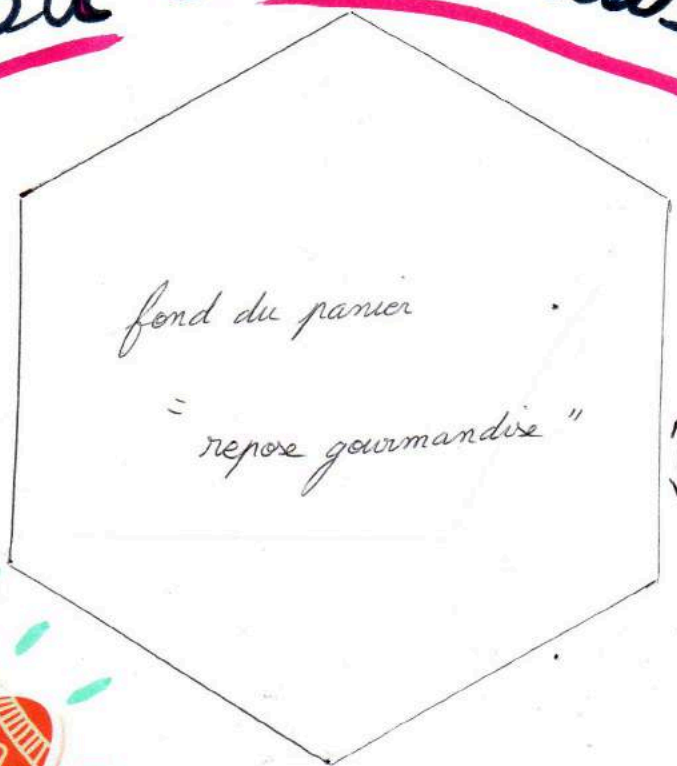 fond du panier
" repose gourmandise "